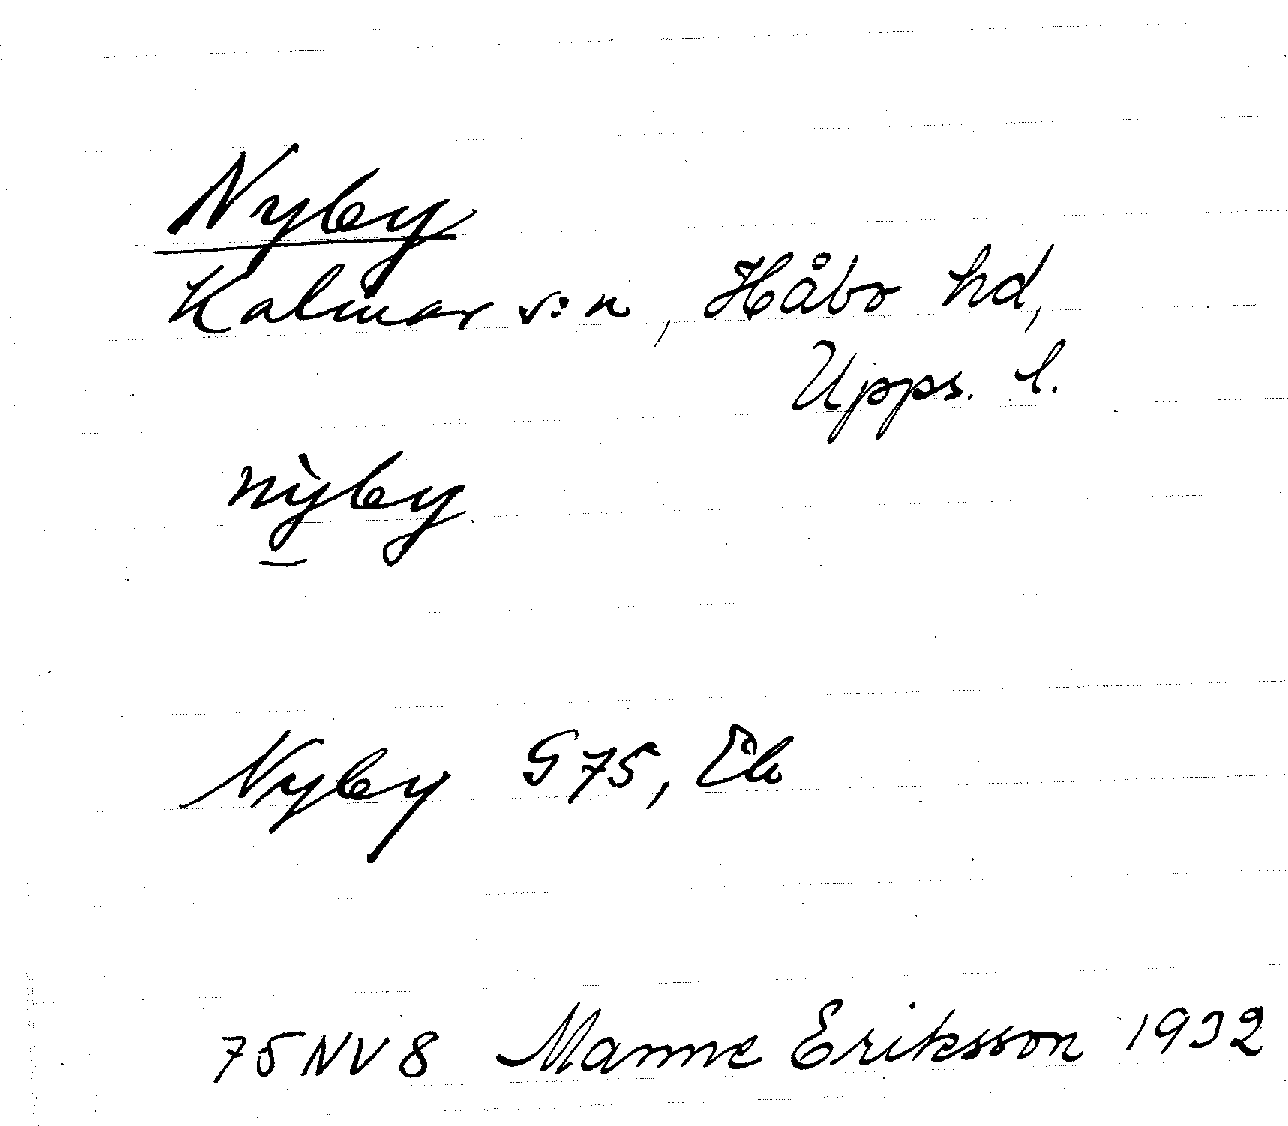 Nyby
Kalmar s:n, Håbo hd,
Upps. l.
nỳby
Nyby G75, Ek
75NV8 Manne Eriksson 1932